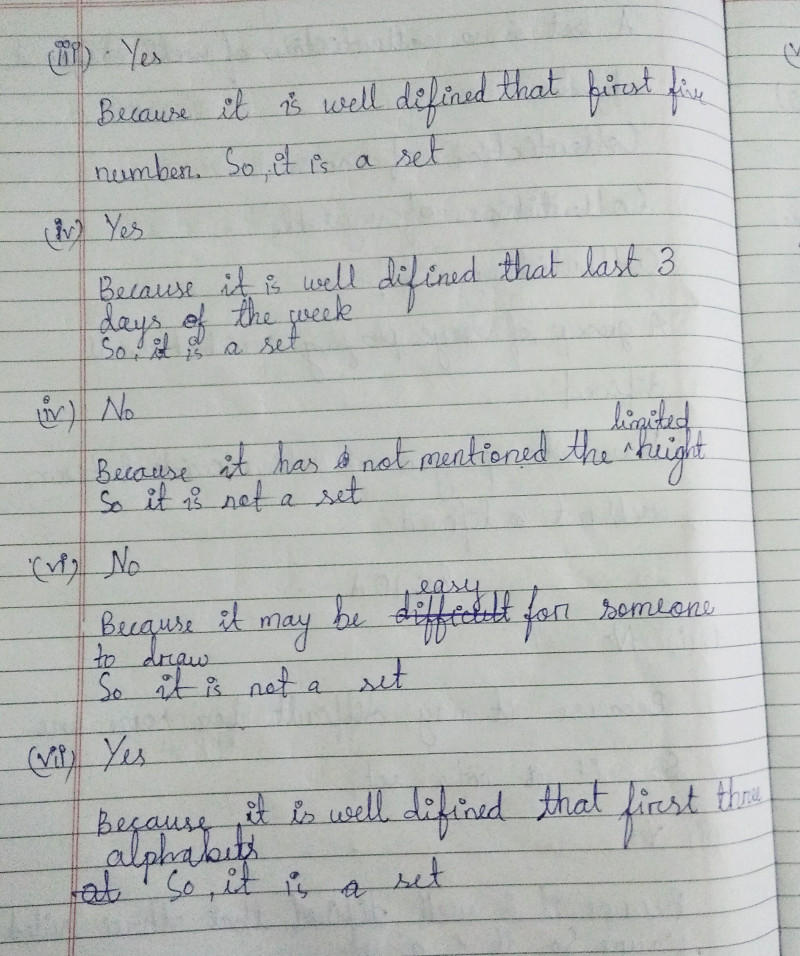 (iii) Yes
Because it is well difined that first five
number. So, it is a set
(iv) Yes
Because it is well difined that last 3
days of the week
So, it is a set
(iv) No
limited
Because it has not mentioned the ^ height
So it is not a set
(vi) No
easy
Because it may be difficult for someone
to draw
So it is not a set
(vii) Yes
Because it is well difined that first three
alphabets
at So, it is a set